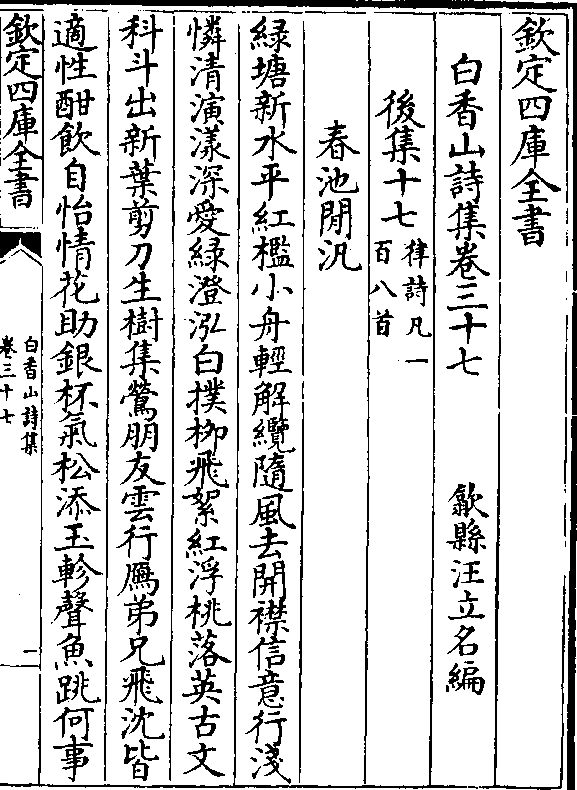 欽定四庫全書
白香山詩集卷三十七　歙縣汪立名編
後集十七律詩凡一百八首
春池閒汎
綠塘新水平紅檻小舟輕解纜隨風去開襟信意行淺
憐清演漾深愛綠澄泓白撲柳飛絮紅浮桃落英古文
科斗出新葉剪刀生樹集鶯朋友雲行鴈弟兄飛沈皆
適性酣飲自怡情花助銀杯氣松添玉軫聲魚跳何事
欽定四庫全書
白香山詩集
卷三十七
一